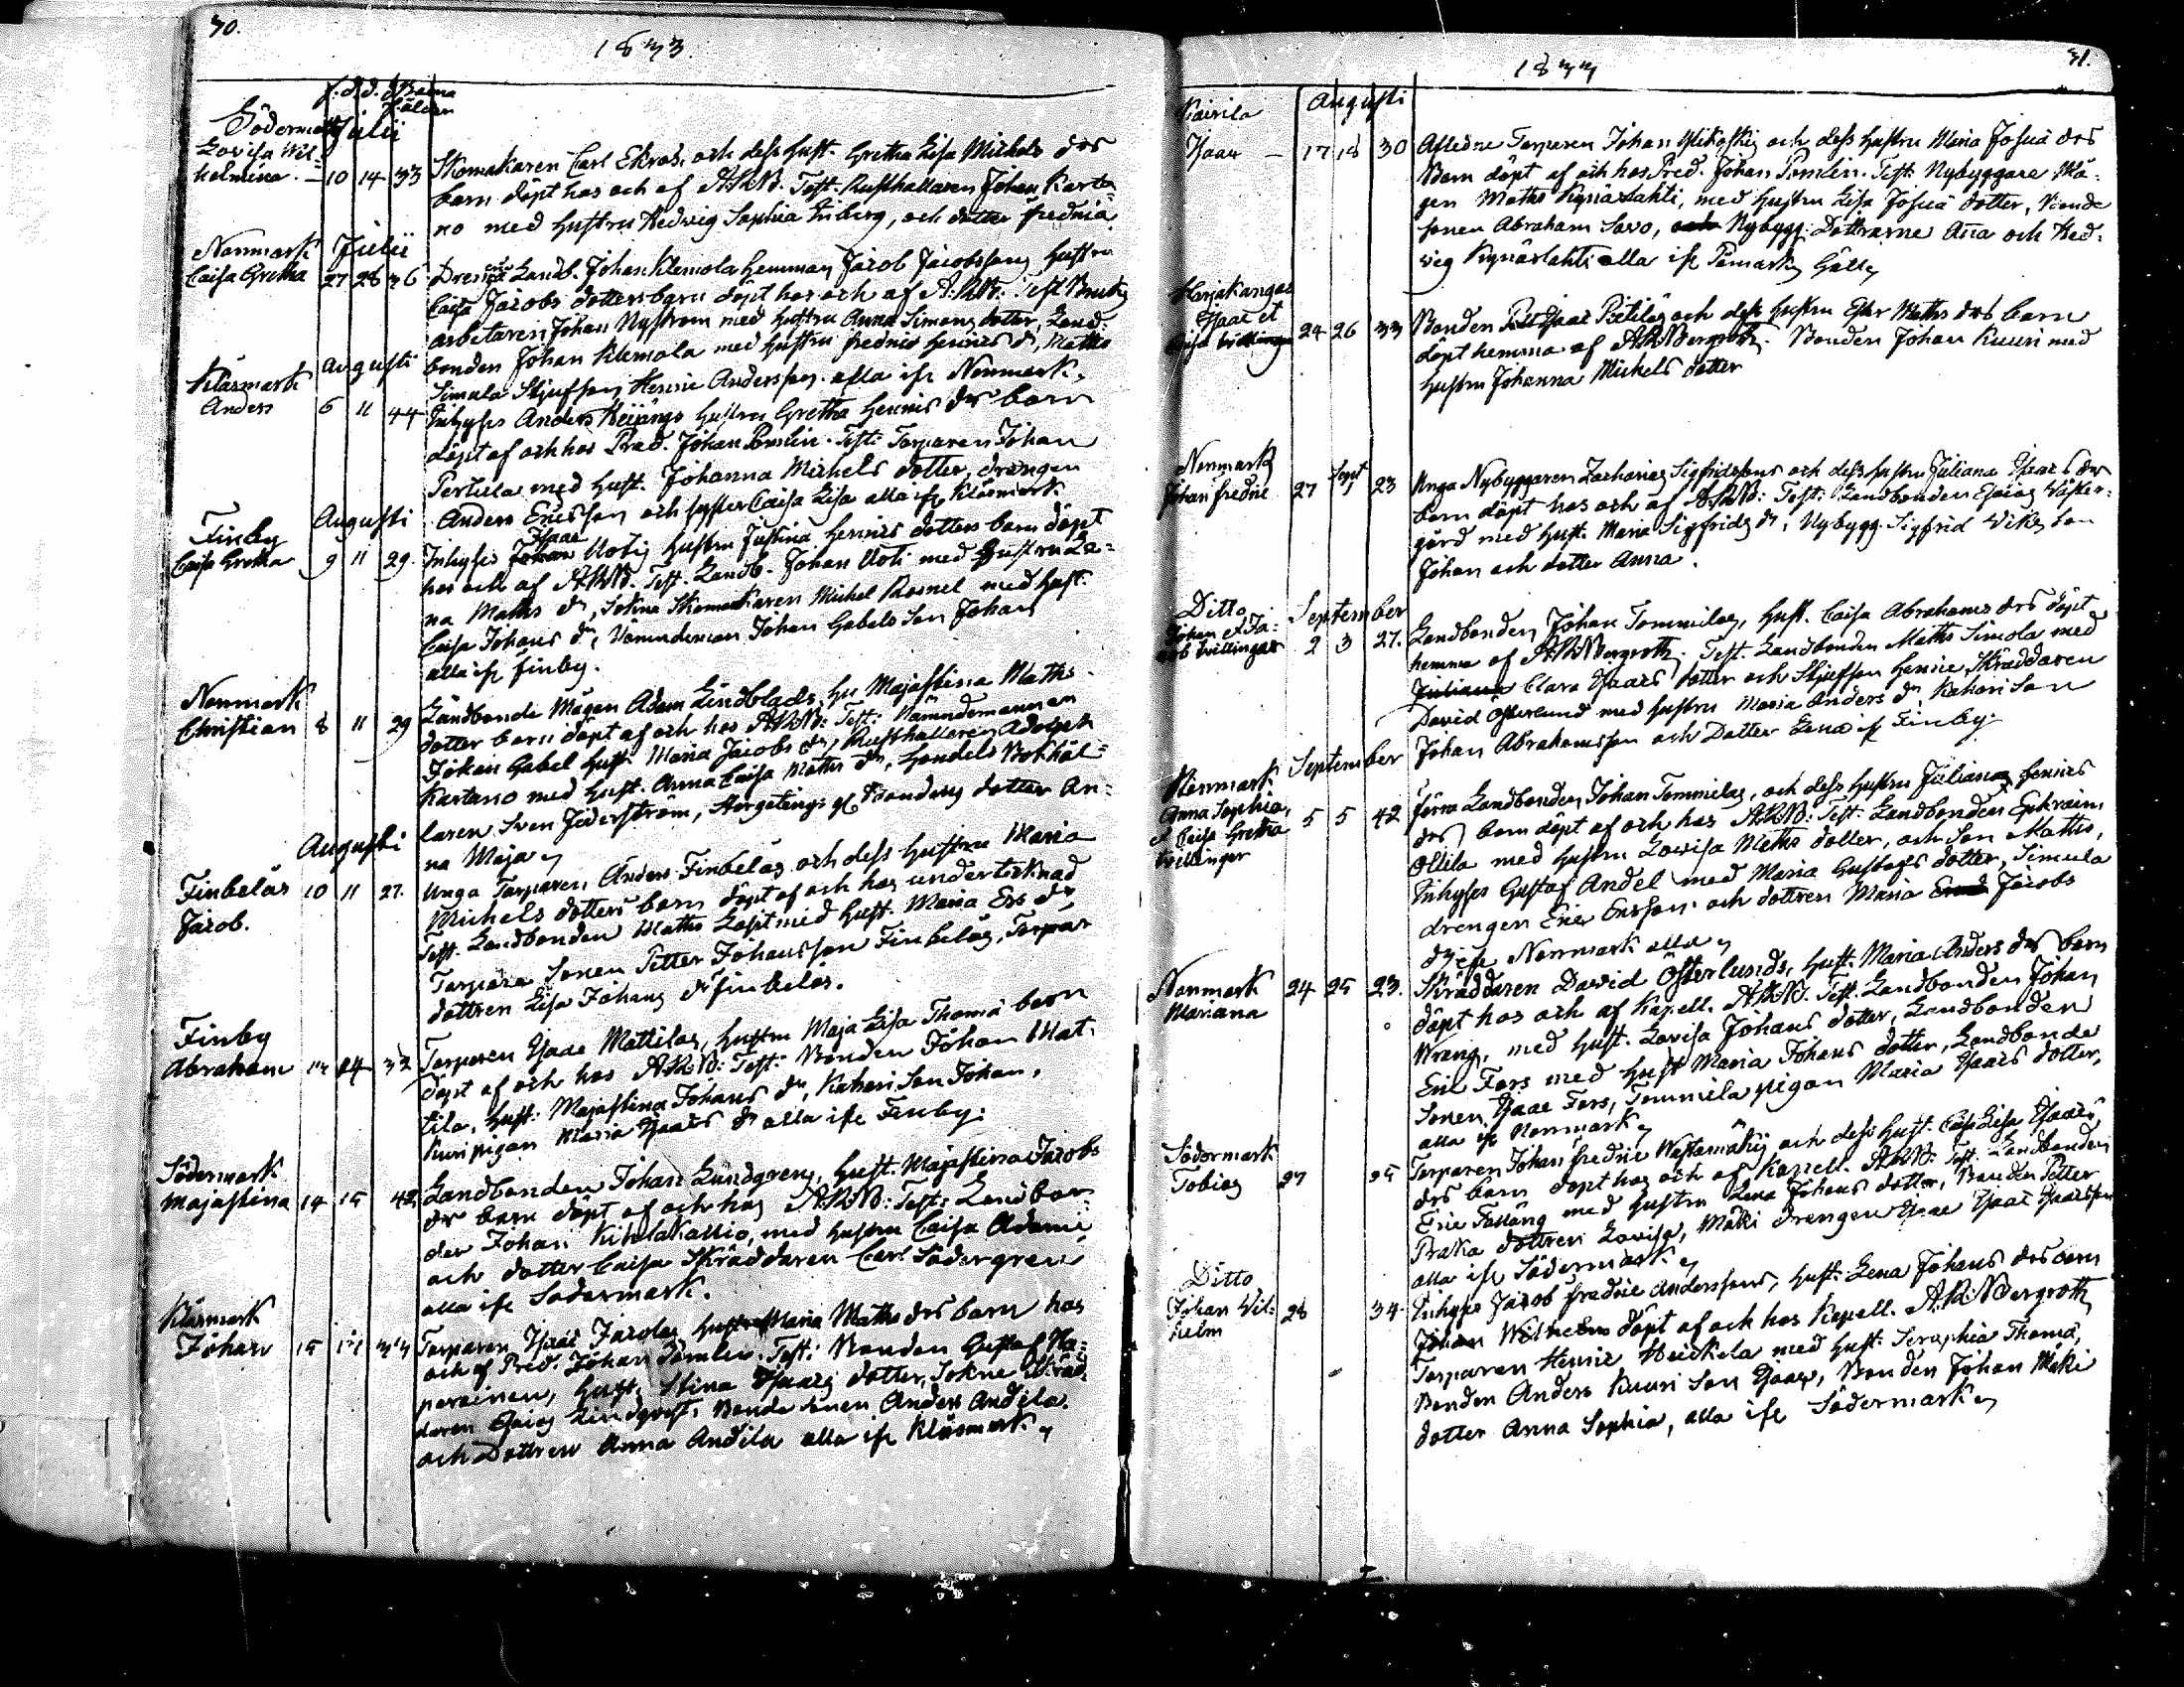 30.
1833.
f. d. d. d. Barna
Ålder
Södermark Julii
Lovisa Wil=
helmina. 10 14 33 Skomakaren Carl Ekros, och dess hust. Gretha Lisa Michels drs
barn döpt hos och af A.R.B. Test. Rusthållaren Johan Karta
no med hustru Hedwig Sophia Friberg, och dotter Fredrica
Norrmark Julii
Caisa Gretha 27 28 36 Landb. Johan Klemola Hemman Jacob Jacobssons hustru
Caisa Jacobs dotters barn döpt hos och af A.R.B. Test Bruks
arbetaren Johan Nyström med hustru Anna Simons dotter, Land=
bonden Johan Klemola med hustru Henrics dr, Matts
Simula Stjufson Henric Andersson alla ifr. Norrmark.
Klåsmark Augusti
Anders 6 11 44 Inhyses Anders hustru Gretha Henrics drs barn
döpt af och hos Pred. Johan Pomlin. Test: Torparen Johan
Pertula med hust. Johanna Michels dotter, drengen
Anders Ericsson och syster Caisa Lisa alla ifr Klåsmark.
Finby Augusti
Isaac
Caisa Gretha 9 11 29. Inhyses Johan Uotis hustru Justina Henrics dotters barn döpt
hos och af A.R.B. Test. Landb. Johan Uoti med Hustru Le=
na Matts dr, Sokne Skomakaren Michel Rosnel med hust.
Caisa Johans dr, Nämndeman Johan Gabels Son Johan
alla ifr Finby.
Norrmark
Christian 8 11 29 Landbonde Mågen Adam Lindblads, hu Majastina Matts
dotter barn döpt af och hos A.R.B: Test: Nämndemannen
Johan Gabel hust. Maria Jacobs dr, Rusthållaren Adolph
Kartano med hust. Anna Caisa Matts dr, Handels Bokhål=
laren Sven Jederström, dotter An=
na Maja
Augusti
Finbelås 10 11 27. Unga Torparen Anders Finbelås och dess hustru Maria
Jacob.
Michels dotters barn döpt af och hos undertecknad
Test. Landbonden Matts med hust. Maria Ers dr
Torpare Sonen Petter Johansson Finbelås, Torpar
dottren Lisa Johans dr Finbelås.
Finby
Abraham 14 32 Torparen Isaac Mattilas, hustru Maja Lisa Thomæ barn
döpt af och hos A.R.B: Test: Bonden Johan Mat=
tila, hust: Majastina Johans dr, Kahari Son Johan,
Kuuri pigan Maria Isaacs dr alla ifr Finby.
Södermark
Majastina 14 15 42 Landbonden Johan Lundgrens, hust. Majastina Jacobs
dr barn döpt af och hos A.R.B: Test: Landbon=
den Johan Kihlakallio, med hustru Caisa Adami
och dotter Caisa Skräddaren Carl Södergren
alla ifr Södermark.
Klåsmark
Johan 15 Torparen Isaac Jacolas hustru Maria Matts drs barn hos
och af Pred. Johan Pomlin. Test: Bonden Gustaf Ha=
parainen, hust. Stina Isaacs dotter, Sokne Skräd=
daren Esaias Lindqvist, Bonde Sonen Anders Andila
och Dottren Anna Andila alla ifr Klåsmark
31.
1833
Kairila Augusti
Isaac 17 18 30 Afledne Torparen Johan och dess hustru Maria Josuæ drs
Barn döpt af och hos Pred. Johan Pomlin. Test: Nybyggare Må=
gen Matts Kynäslahti, med hustru Lisa Josuæ dotter, Bonde
sonen Abraham Savo, och Nybygg. Döttrarne Ana och Hed=
vig Kynäslahti alla ifr Påmarks
Harjakangas
Isaac et
Caisa tvillingar 24 26 33 Bonden Isaac Pietiläs och dess hustru Ester Matts drs barn
döpt hemma af A.R. Bergroth. Bonden Johan Kuuri med
hustru Johanna Michels dotter
Norrmark Sept
Johan Fredric 27 23 Unga Nybyggaren Zacharias Sigfridssons och dess hustru Juliana Isaacs drs
barn döpt hos och af A.R.B: Test: Landbonden Esaias Wäster=
gård med hust. Maria Sigfrids dr, Nybygg. Sigfrid Wikes Son
Johan och dotter Anna.
Ditto September
Johan et Ja=
cob tvillingar 2 3 27. Landbonden Johan Tommilas, hust. Caisa Abrahams drs döpt
hemma af A.R. Bergroth. Test. Landbonden Matts Simola med
Juliana Clara Isaacs dotter och Stjufson Henric, Skräddaren
David Österlund med hustru Maria Anders dr, Kahari Son
Johan Abrahamsson och Dotter Lena ifr Finby
Norrmark September
Anna Sophia,
et Caisa Gretha 5 5 42 Förra Landbonden Johan Tommilas, och dess hustru Julianas Henrics
tvillingar
drs barn döpt af och hos A.R.B: Test: Landbonden Ephraim
Ollila med hustru Lovisa Matts dotter, och Son Matts,
Inhyses Gustaf Andel med Maria Gustafs dotter, Simula
drengen Eric Ersson och dottren Maria Jacobs
dr ifr Norrmark alla
Norrmark 24 25 23. Skräddaren David Österlunds, hust. Maria Anders drs barn
Mariana
döpt hos och af Kapell. A.R.B. Test. Landbonden Johan
Wrang, med hust. Lovisa Johans dotter, Landbonden
Eric Fors med hust Maria Johans dotter, Landbonde
Sonen Isaac Fors, Tommila pigan Maria Isaacs dotter,
alla ifr Norrmark
Södermark
Tobias 27 25 Torparen Johan Fredric Wästamäkis och dess hust. Caisa Lisa Isaacs
drs barn döpt hos och af Kapell. A.R.B. Test. Landbonden
Eric Fallång med hustru Lena Johans dotter, Bonden Petter
Praka dottren Lovisa, Mäki drengen Isaac Isaacsson
alla ifr Södermark
Ditto
Johan Wil=
helm 28 34 Inhyses Jacob Fredric Anderssons, hust. Lena Johans drs barn
Johan Wilhelm döpt af och hos Kapell. A.R. Bergroth
Torparen Henric Heickela med hust. Seraphia Thomæ,
Bonden Anders Kuuri Son Isaac, Bonden Johan Mäki
dotter Anna Sophia, alla ifr Södermark